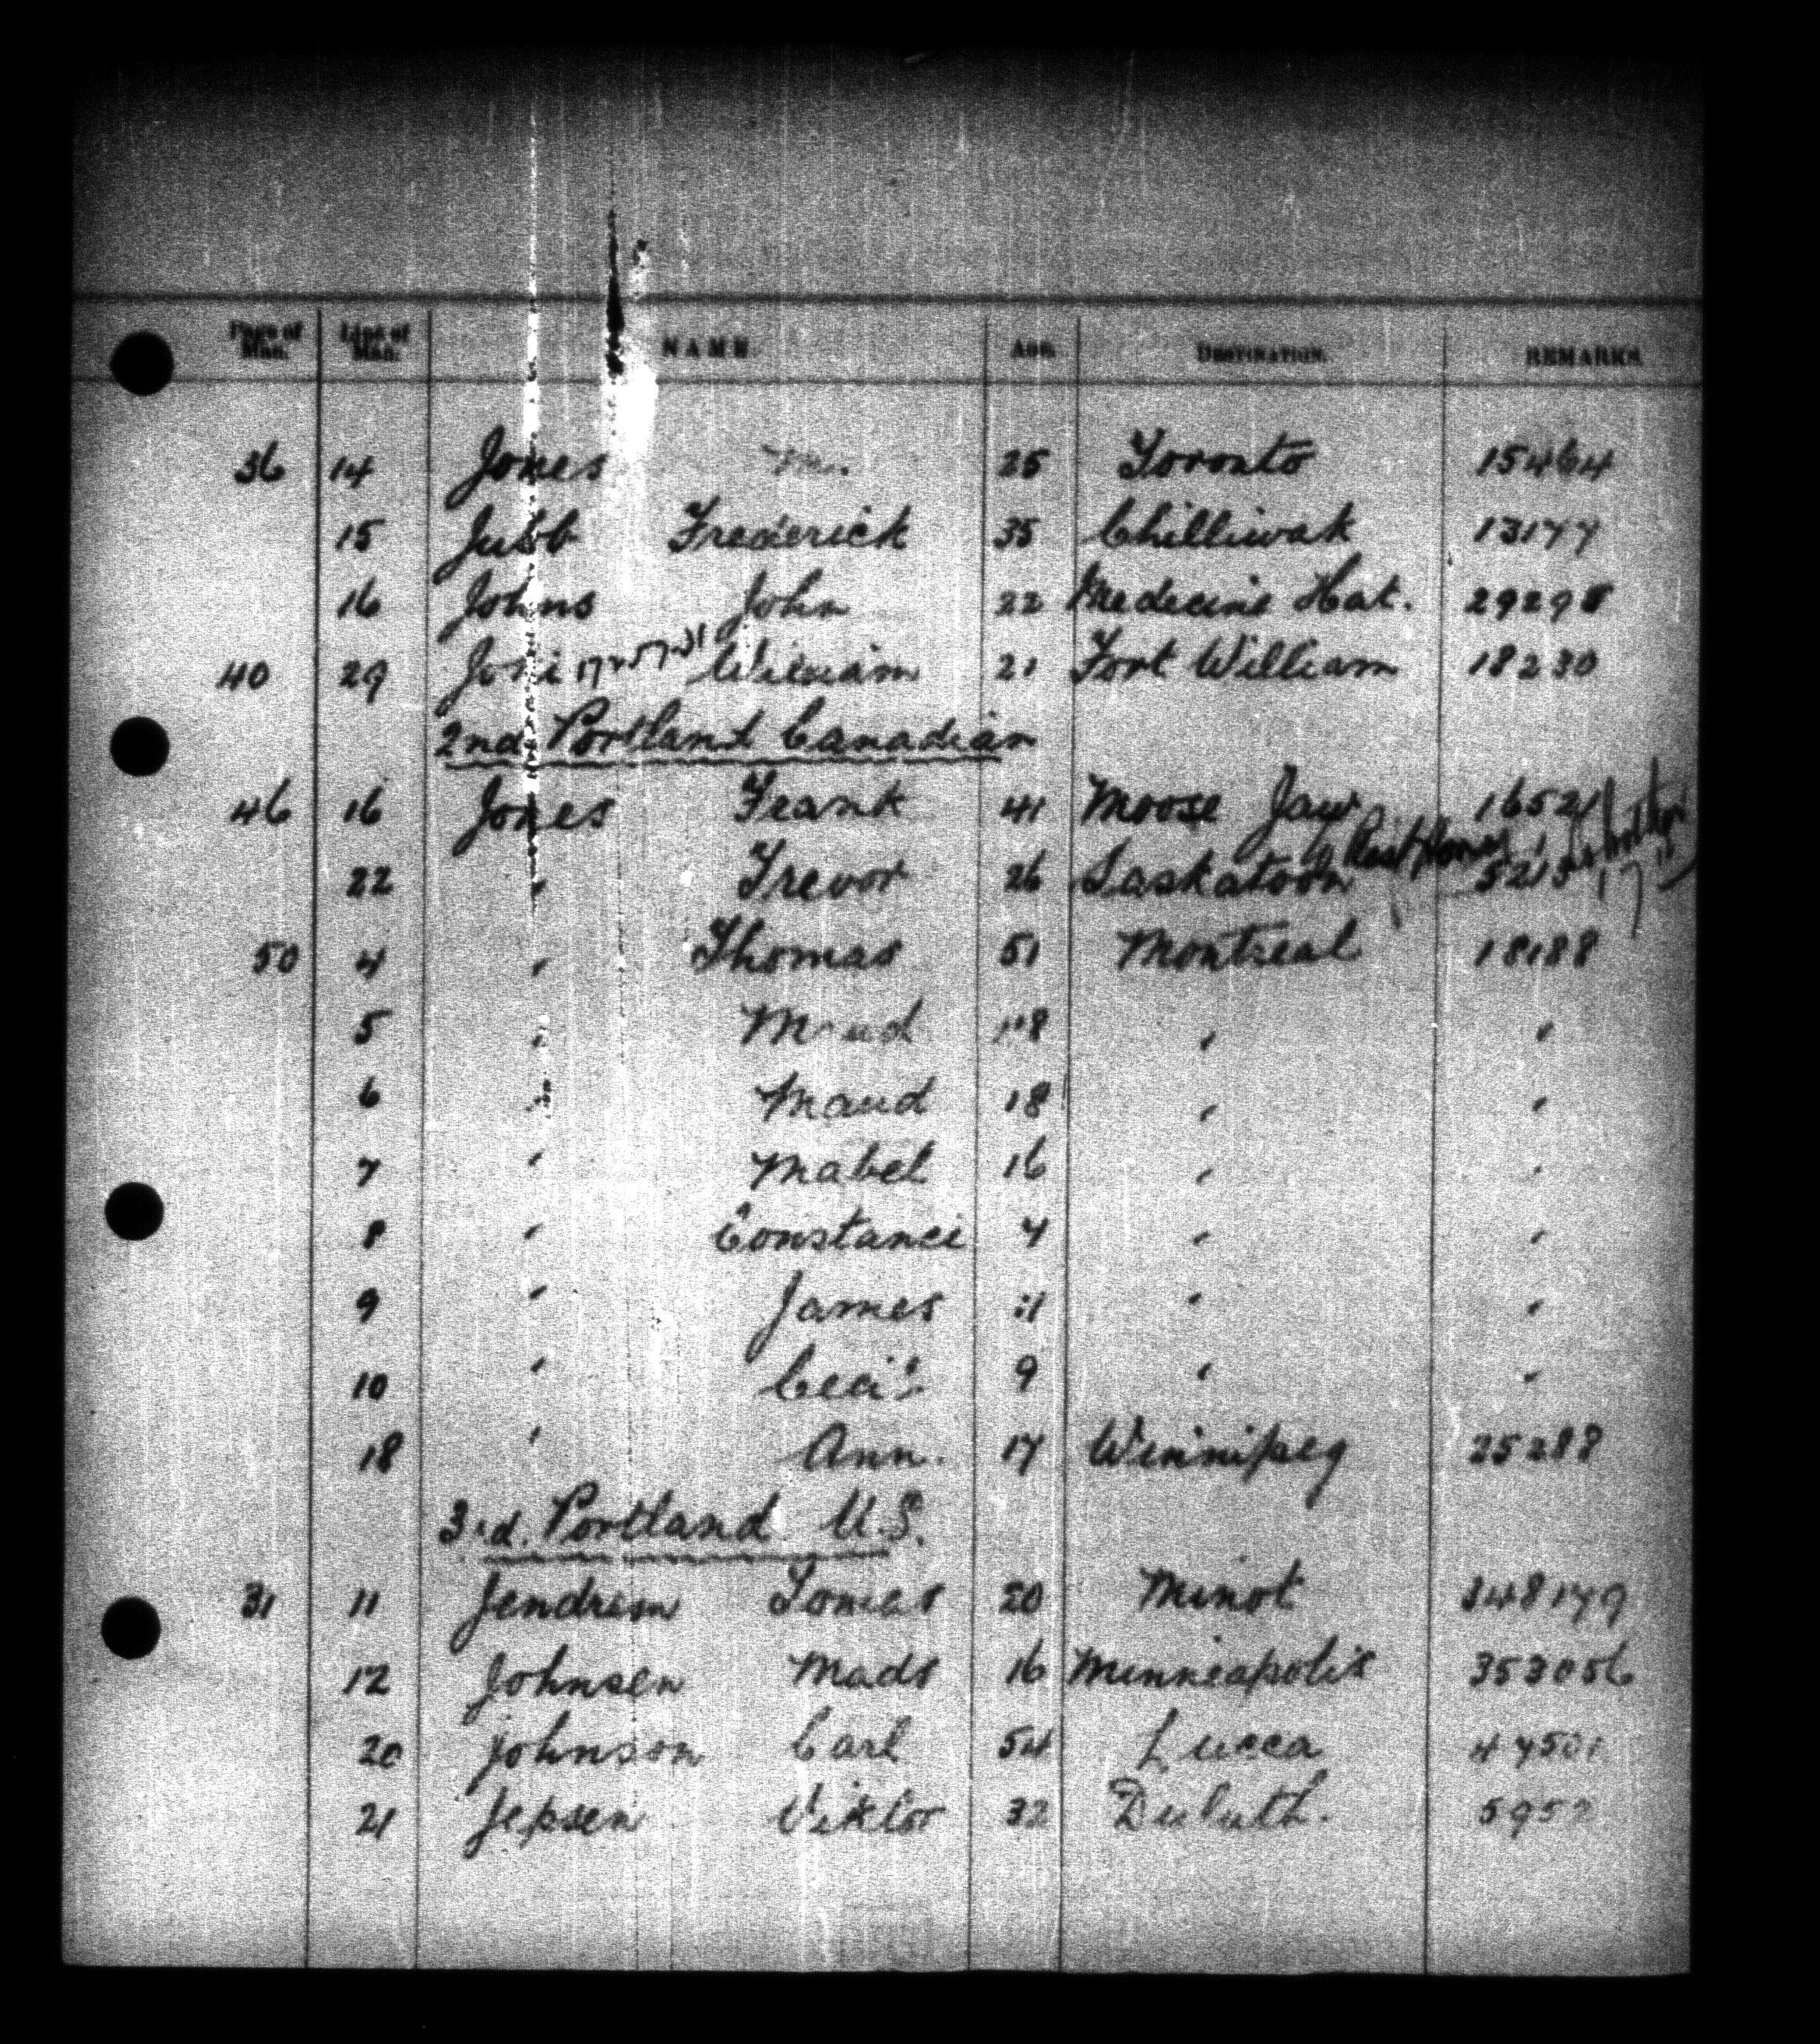 Page of Man. Line of Man. NAME Age. DESTINATION. REMARKS
36 14 Jones M. 25 Toronto 15464
15 Jubb Frederick 35 Chilliwak 13177
16 Johns John 22 Medecine Hat. 29298
40 29 William 21 Fort William 18230
2nd Portland Canadian
46 16 Jones Frank 41 Moose Jaw 16521
22 " Trevor 26 Saskatoon
50 4 " Thomas 51 Montreal 18188
5 " " "
6 " Maud 18 " "
7 " Mabel 16 " "
8 " Constance 4 " "
9 " James 11 " "
10 " Cecil 9 " "
18 " Ann. 17 Winnipeg 25288
3rd. Portland U.S.
31 11 20 Minot 348179
12 Johnsen Mads 16 Minneapolis 353056
20 Johnson Carl 54 Lucca 47501
21 Jepsen Viktor 32 Duluth.